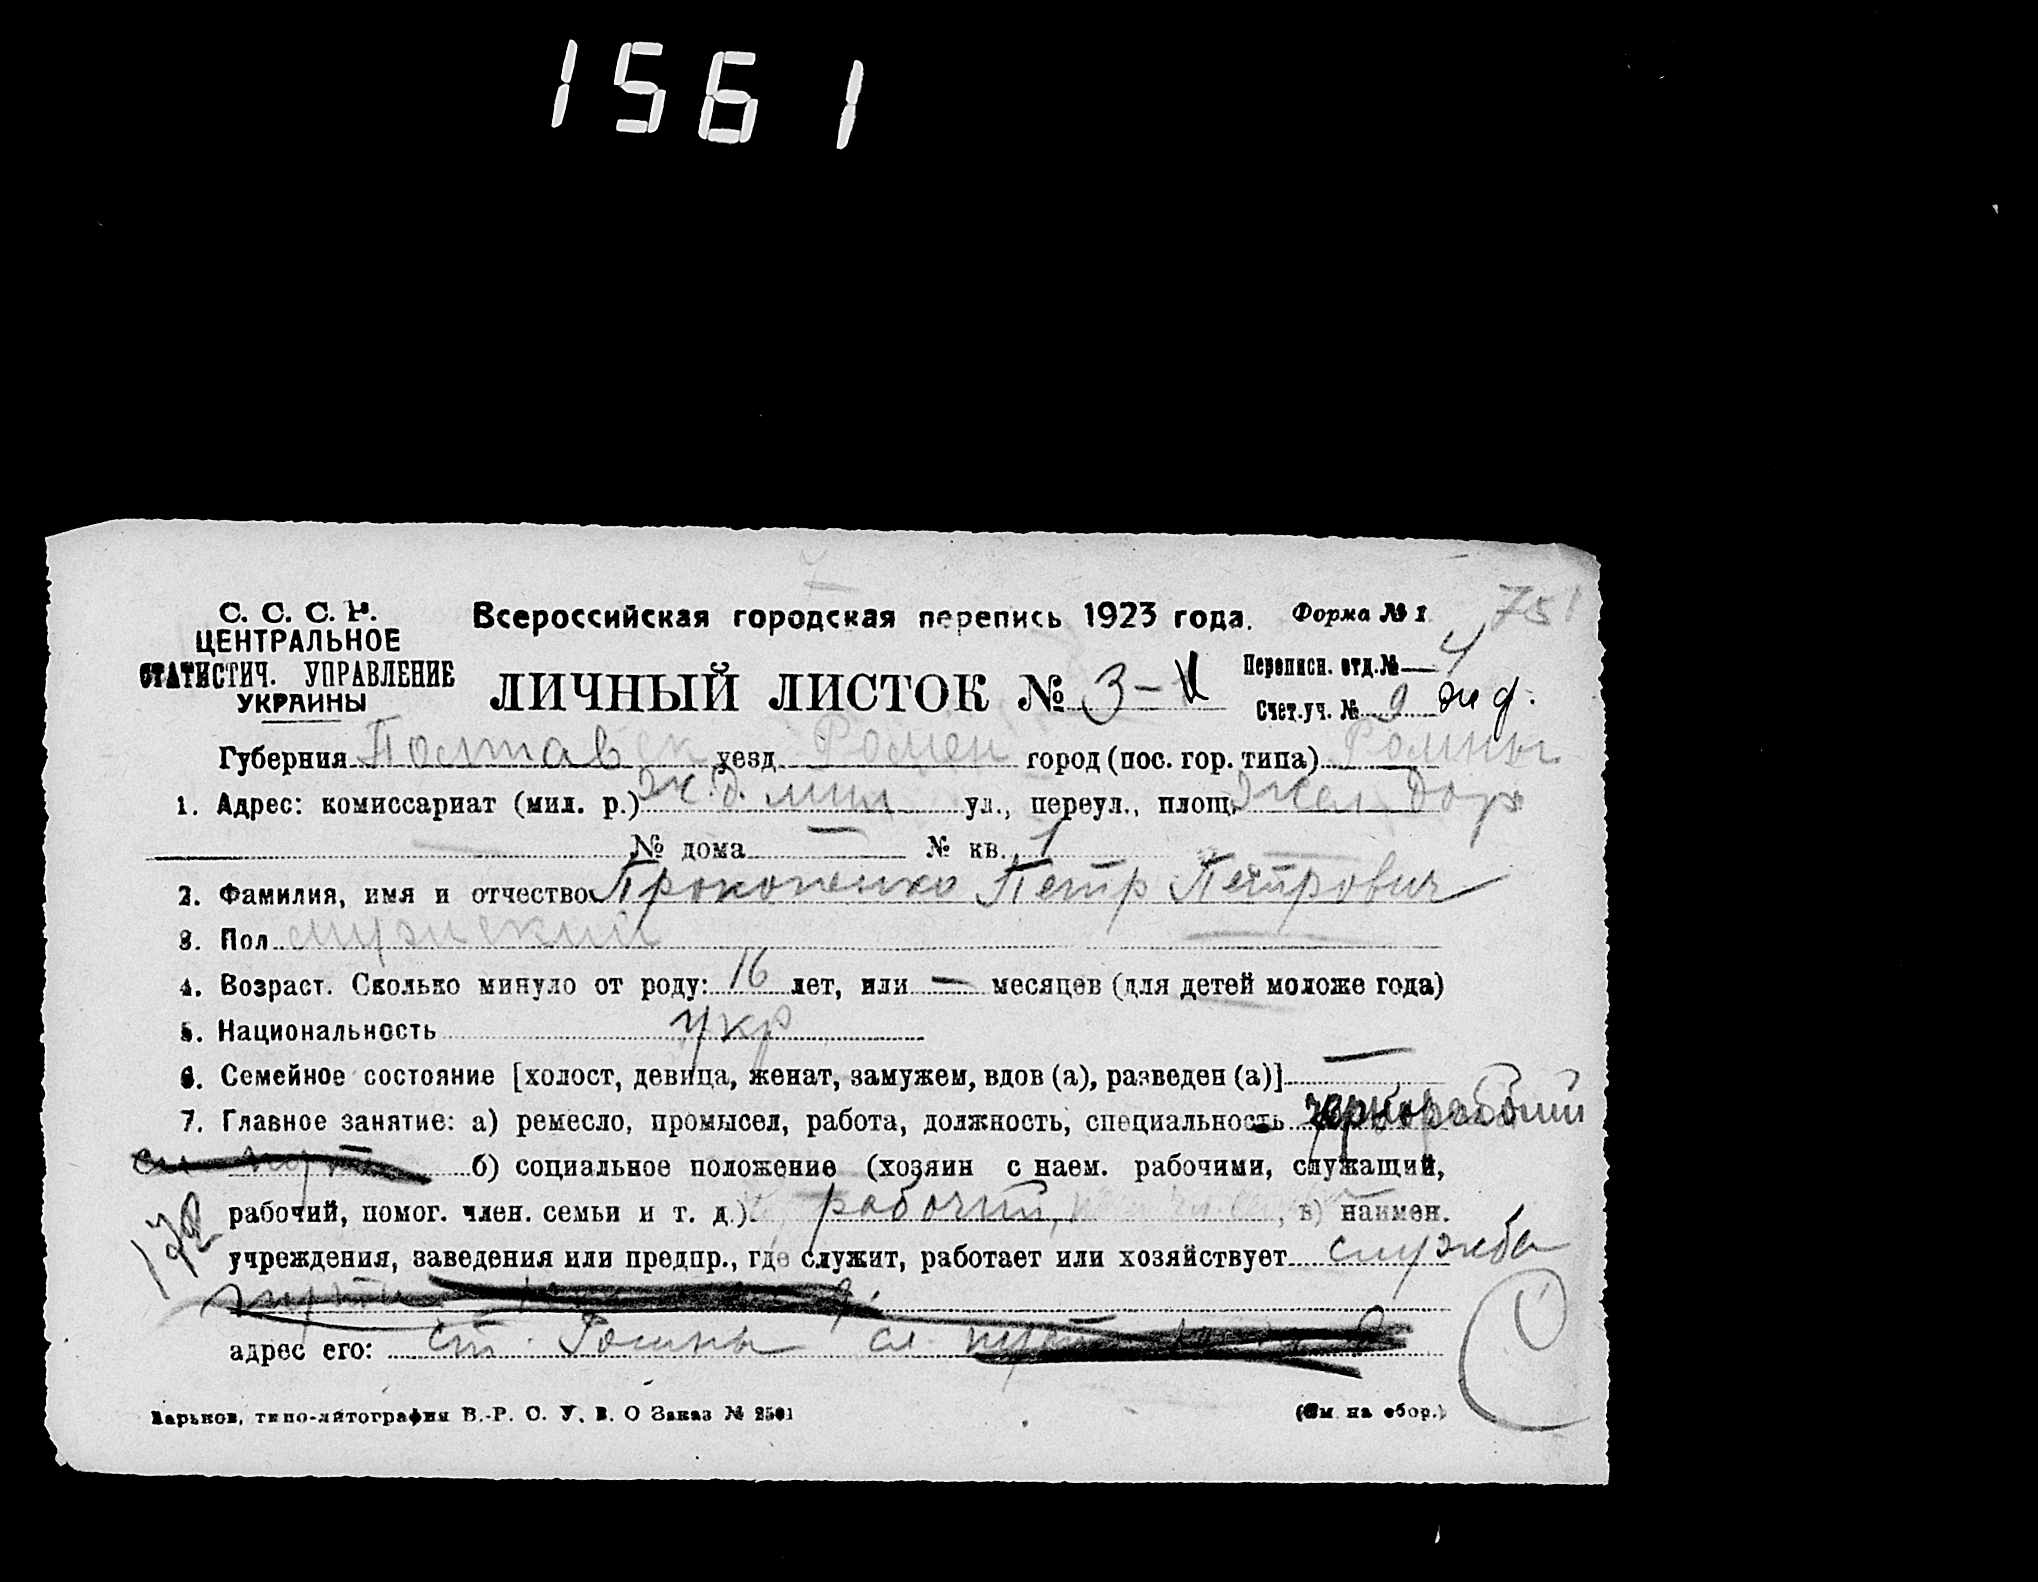 1561
751
С. С. С. Р.
ЦЕНТРАЛЬНОЕ
СТАТИСТИЧ. УПРАВЛЕНИЕ
УКРАИНЫ
Всероссийская городская перепись 1923 года.
Форма № 1
ЛИЧНЫЙ ЛИСТОК № 3-
Переписн. отд. № 4
Счет. уч. № 9 жд.
Губерния Полтавск уезд Ромен город (пос. гор. типа) Ромны
1. Адрес: комиссариат (мил. р.) Ж.д. мил ул., переул., площ. Жел. дор
№ дома — № кв. 1
2. Фамилия, имя и отчество Прокопенко Петр Петрович
3. Пол мужской
4. Возраст. Сколько минуло от роду: 16 лет, или — месяцев (для детей моложе года)
5. Национальность укр
6. Семейное состояние [холост, девица, женат, замужем, вдов (а), разведен (а)] —
7. Главное занятие: а) ремесло, промысел, работа, должность, специальность чернорабочий
сл б) социальное положение (хозяин с наем. рабочими, служащий,
рабочий, помог. член. семьи и т. д.) рабочий, , в) наимен.
учреждения, заведения или предпр., где служит, работает или хозяйствует служба
пути
адрес его: ст. Ромны сл. пути
172
Харьков, типо-литография В.-Р. С. У. В. О Заказ № 2501
(См. на обор.)